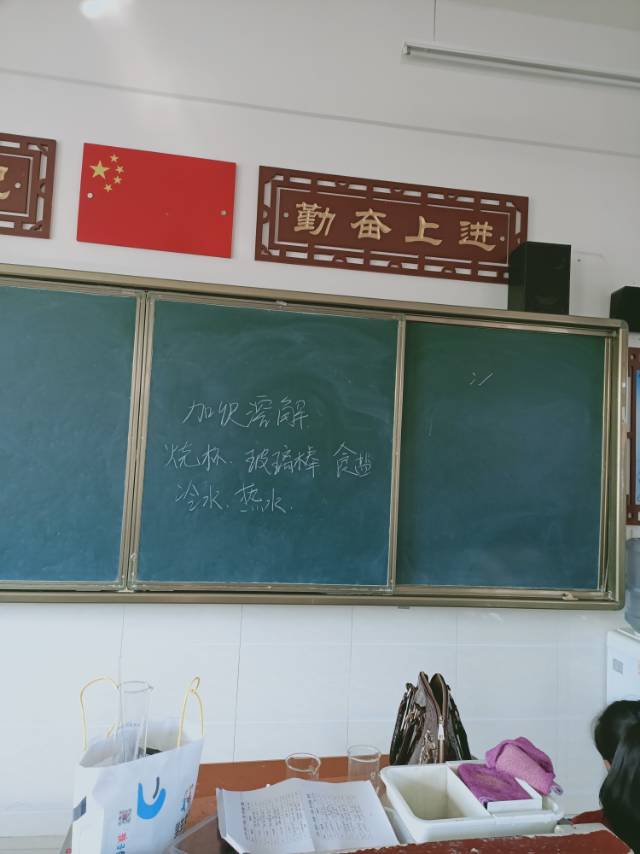 勤奋上进
加快溶解
烧杯.玻璃棒 食盐
冷水.热水.